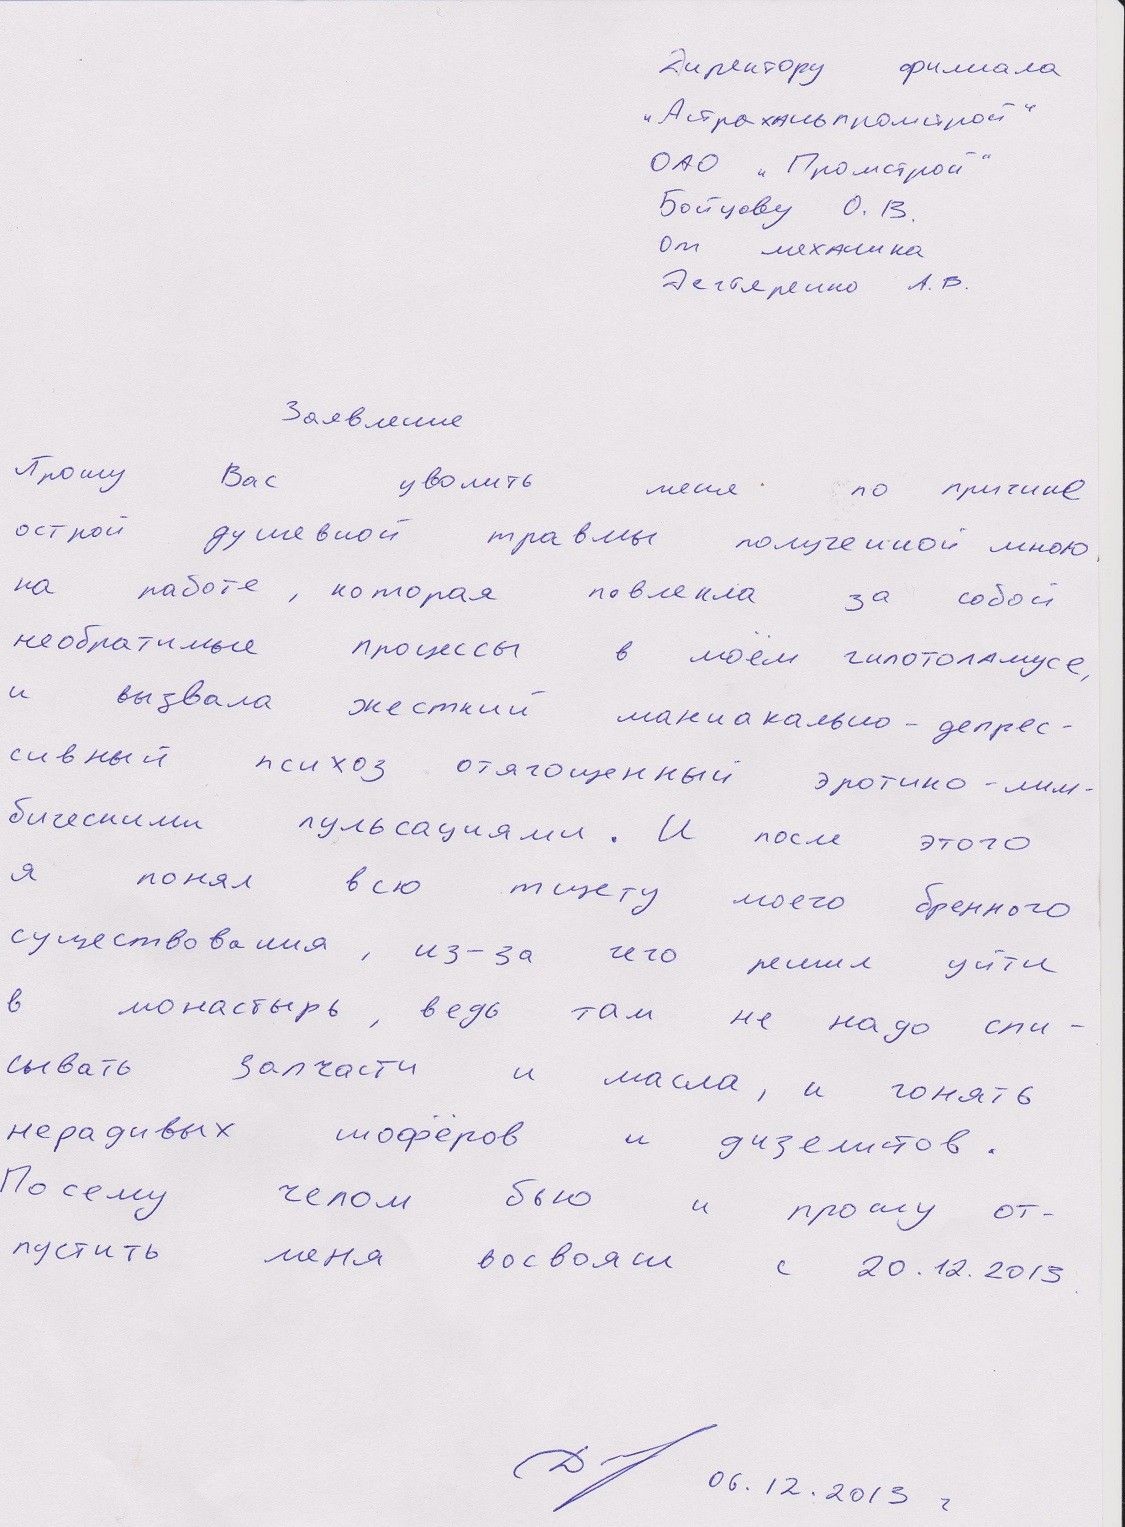 Директору филиала
„Астраханьпромстрой“
ОАО „Промстрой“
Бойцову О.В.
от механика
Дегтяренко А.В.
Заявление
Прошу Вас уволить меня по причине
острой душевной травмы полученной мною
на работе, которая повлекла за собой
необратимые процессы в моём гипоталамусе,
и вызвала жесткий маниакально-депрес-
сивный психоз отягощенный эротико-лим-
бическими пульсациями. И после этого
я понял всю тщету моего бренного
существования, из-за чего решил уйти
в монастырь, ведь там не надо спи-
сывать запчасти и масла, и гонять
нерадивых шофёров и дизелистов.
Посему челом бью и прошу от-
пустить меня восвояси с 20.12.2013
06.12.2013 г